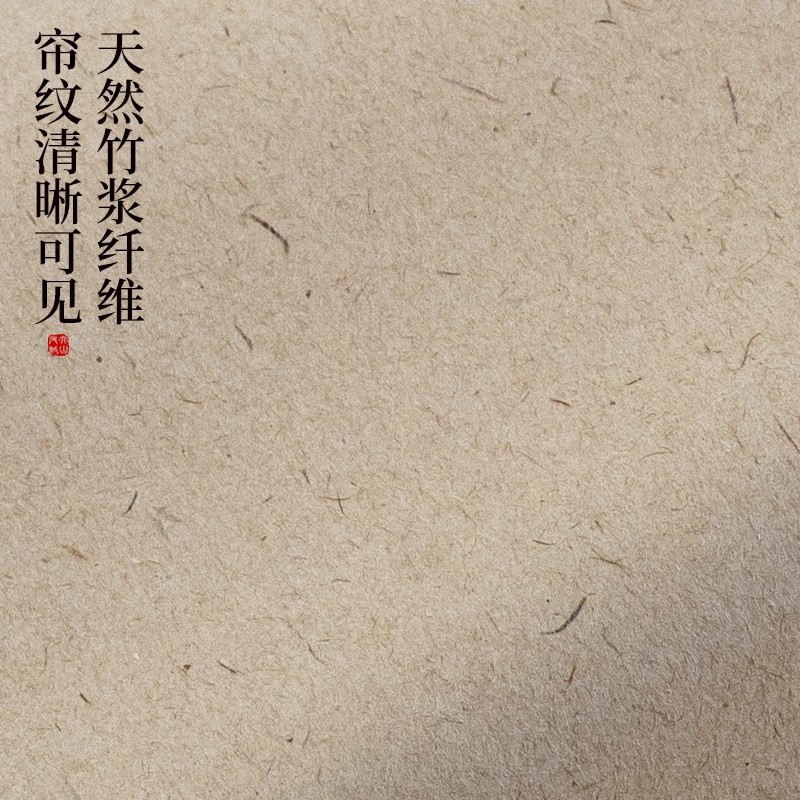 天然竹浆纤维
帘纹清晰可见